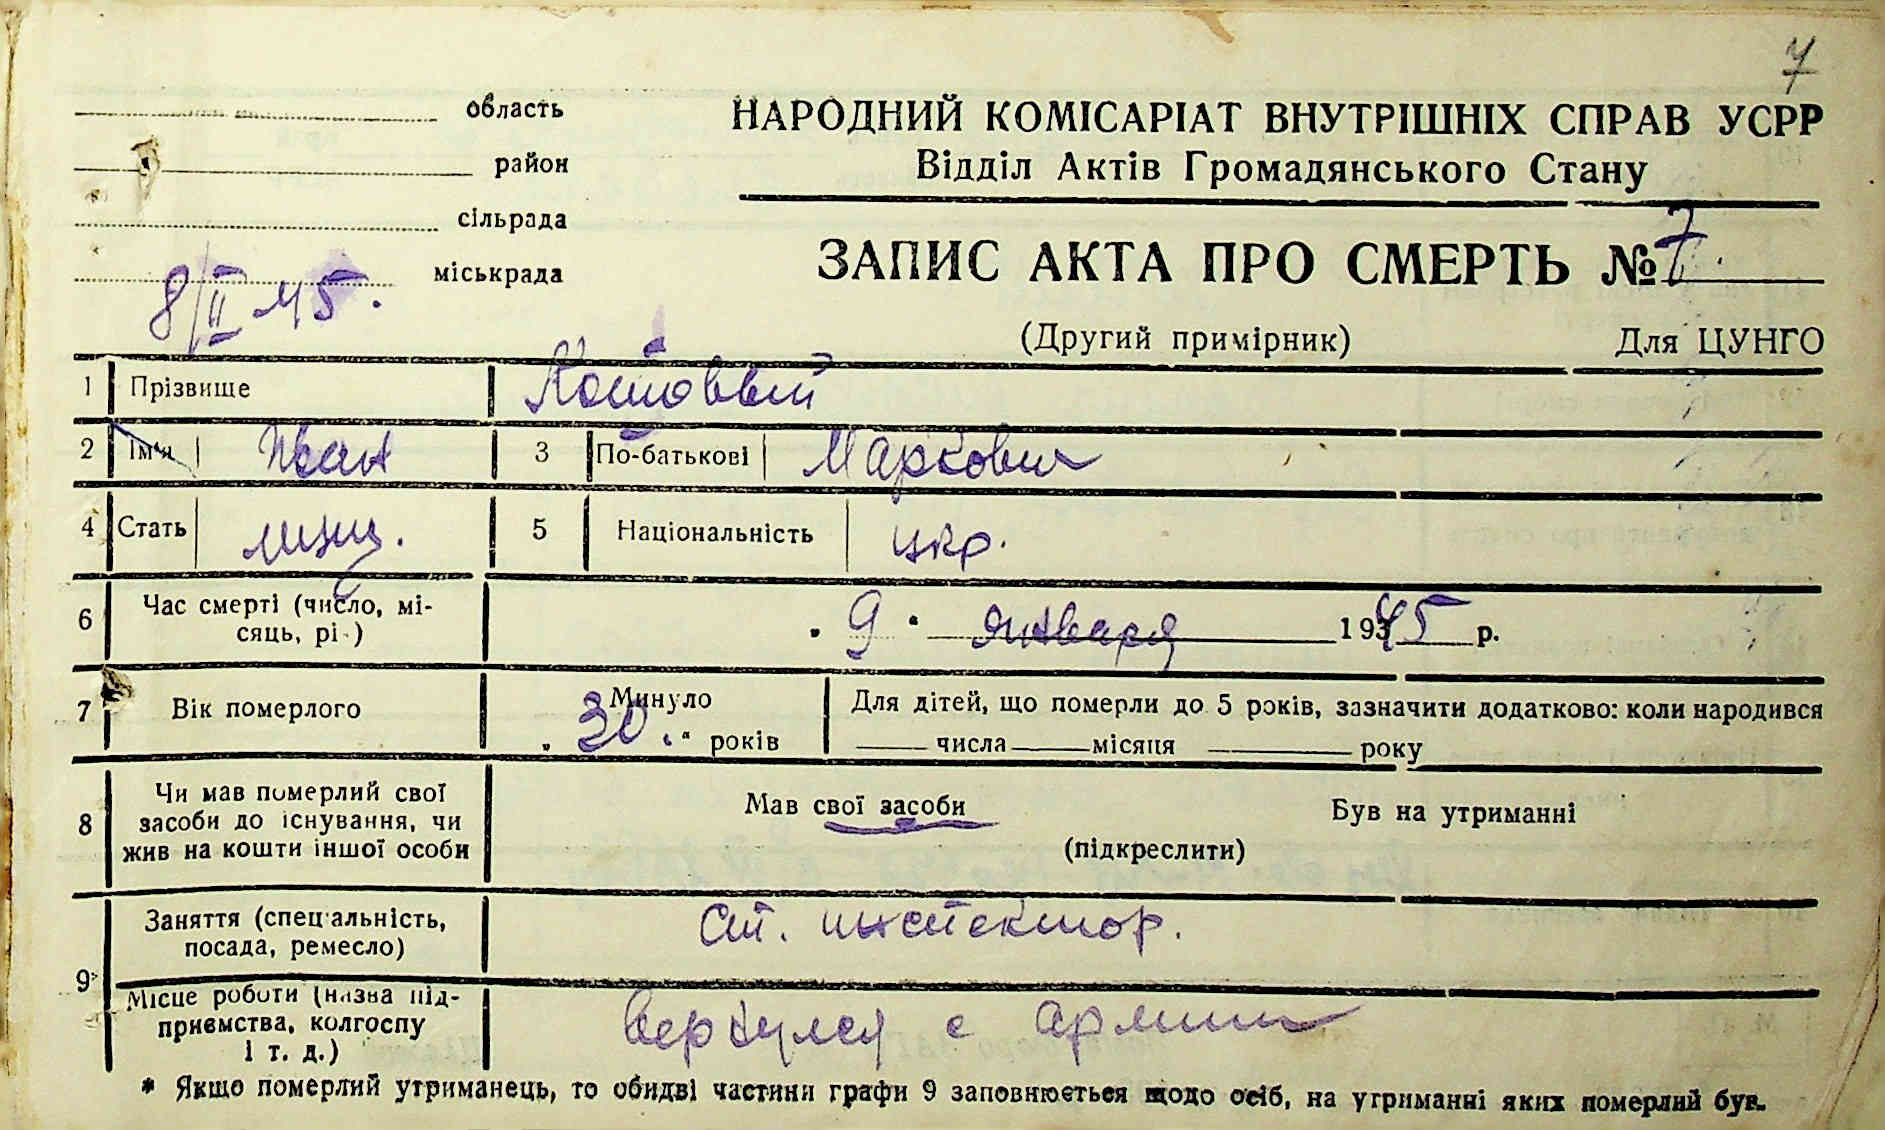 7
область
район
сільрада
міськрада
8/II 45.
НАРОДНИЙ КОМІСАРІАТ ВНУТРІШНІХ СПРАВ УСРР
Відділ Актів Громадянського Стану
ЗАПИС АКТА ПРО СМЕРТЬ № 7.
(Другий примірник) Для ЦУНГО
1 Прізвище
2 Ім'я Иван 3 По-батькові Маркович
4 Стать мужч. 5 Національність укр.
6 Час смерті (число, мі-
сяць, рі )
„ 9 " января 1945 р.
7 Вік померлого
Минуло
„ 30 " років
Для дітей, що померли до 5 років, зазначити додатково: коли народився
числа місяця року
8 Чи мав померлий свої
засоби до існування, чи
жив на кошти іншої особи
Мав свої засоби Був на утриманні
(підкреслити)
9
Заняття (спеціальність,
посада, ремесло)
Ст. инспектор.
Місце роботи (назва під-
приємства, колгоспу
і т. д.)
вернулся с армии
* Якщо померлий утриманець, то обидві частини графи 9 заповнюється щодо осіб, на утриманні яких померлий був.